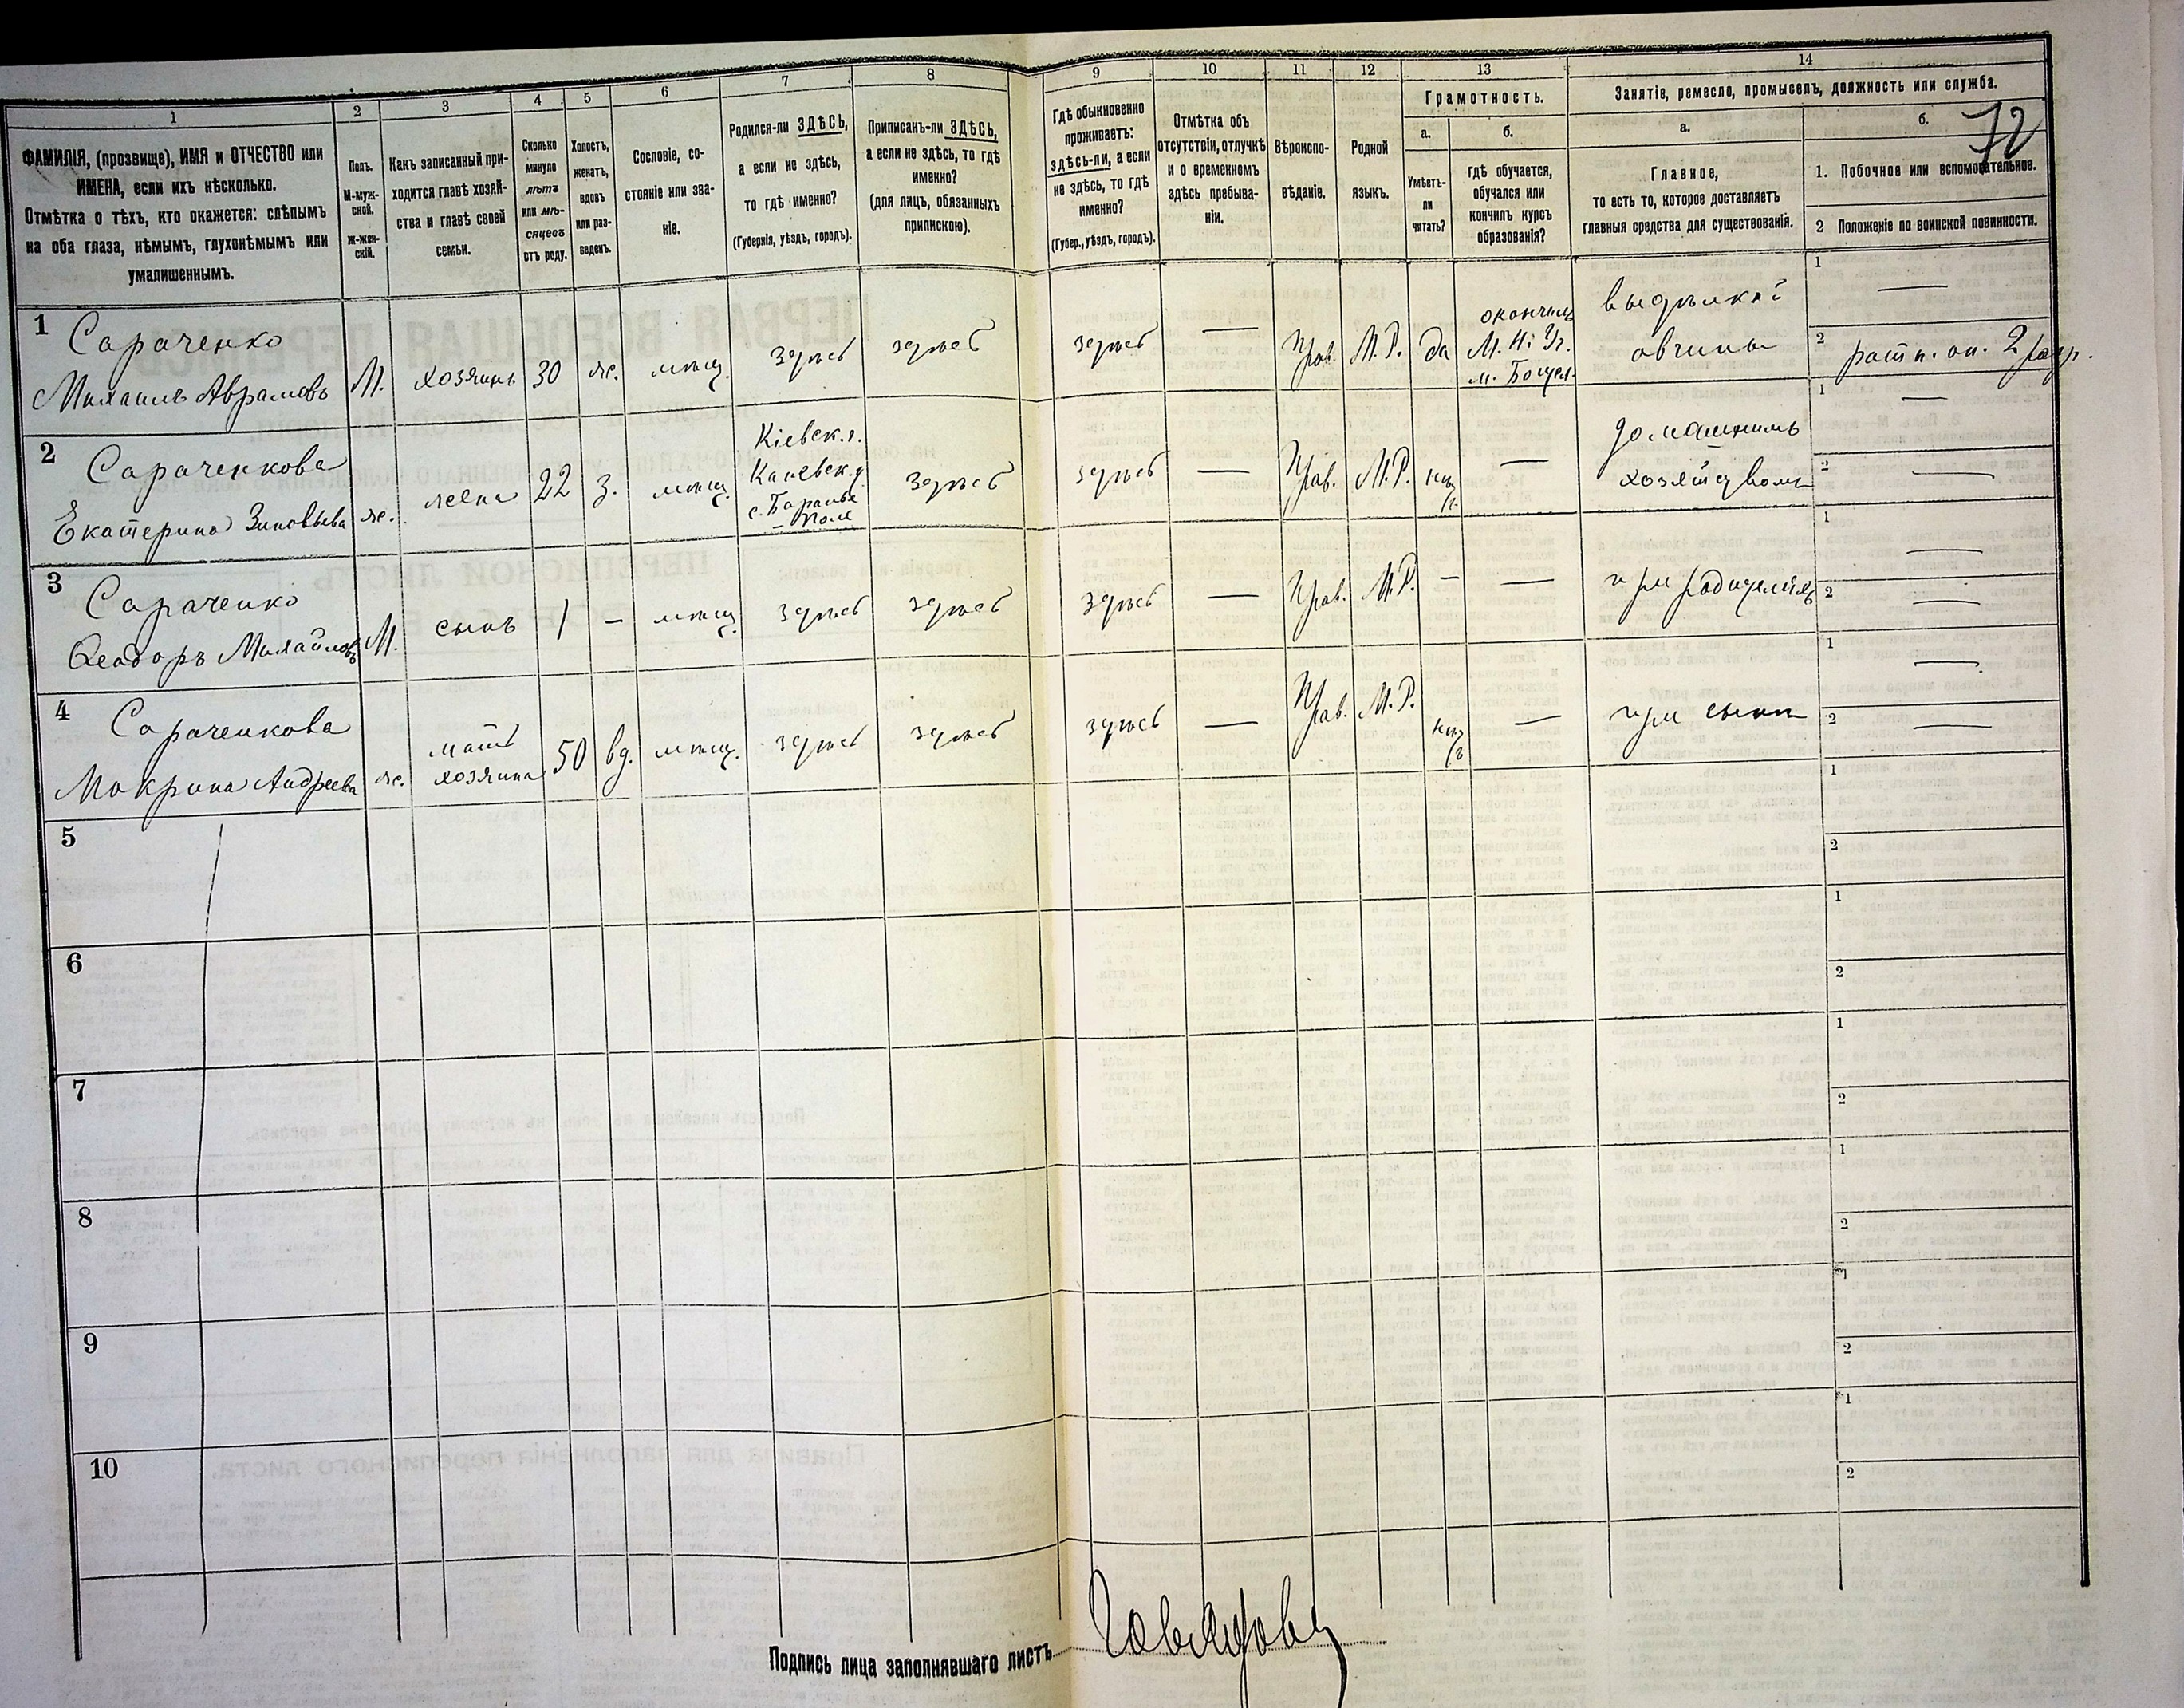 1 2 3 4 5 6 7 8 9 10 11 12 13 14
ФАМИЛІЯ, (прозвище), ИМЯ и ОТЧЕСТВО или
ИМЕНА, если ихъ нѣсколько.
Отмѣтка о тѣхъ, кто окажется: слѣпымъ
на оба глаза, нѣмымъ, глухонѣмымъ или
умалишеннымъ.
Полъ.
М-муж-
ской.
Ж-жен-
скій.
Какъ записанный при-
ходится главѣ хозяй-
ства и главѣ своей
семьи.
Сколько
минуло
лѣтъ
или мѣ-
сяцевъ
отъ роду.
Холостъ,
женатъ,
вдовъ
или раз-
веденъ.
Сословіе, со-
стояніе или зва-
ніе.
Родился-ли ЗДѢСЬ,
а если не здѣсь,
то гдѣ именно?
(Губернія, уѣздъ, городъ).
Приписанъ-ли ЗДѢСЬ,
а если не здѣсь, то гдѣ
именно?
(для лицъ, обязанныхъ
припискою).
Гдѣ обыкновенно
проживаетъ:
здѣсь-ли, а если
не здѣсь, то гдѣ
именно?
(Губер., уѣздъ, городъ).
Отмѣтка объ
отсутствіи, отлучкѣ
и о временномъ
здѣсь пребыва-
ніи.
Вѣроиспо-
вѣданіе.
Родной
языкъ.
Грамотность.
а.
Умѣетъ-
ли
читать?
б.
гдѣ обучается,
обучался или
кончилъ курсъ
образованія?
Занятіе, ремесло, промыселъ, должность или служба.
а.
Главное,
то есть то, которое доставляетъ
главныя средства для существованія.
б.
72
1. Побочное или вспомогательное.
2 Положеніе по воинской повинности.
1
Сараченко
Михаилъ Аврамовъ
М.
хозяинъ
30
ж.
мѣщ.
здѣсь
здѣсь
здѣсь
—
Прав.
М.Р.
да
окончилъ
М. Н. Уч.
выдѣлкой
овчины
1 —
2 ратн. оп. 2 разр.
2
Сараченкова
Екатерина Зиновьева
ж.
жена
22
з.
мѣщ.
Кіевск. г.
Каневск. у.
с. Баранье
Поле
здѣсь
здѣсь
—
Прав.
М.Р.
нѣтъ
—
домашнимъ
хозяйствомъ
1 —
2 —
3
Сараченко
Ѳеодоръ Михайловъ
М.
сынъ
1
–
мѣщ.
здѣсь
здѣсь
здѣсь
—
Прав.
М.Р.
–
—
при родителяхъ
1 —
2 —
4
Сараченкова
Макрина Андреева
ж.
мать
хозяина
50
вд.
мѣщ.
здѣсь
здѣсь
здѣсь
—
Прав.
М.Р.
нѣтъ
—
при сынѣ
1 —
2 —
5
1
2
6
1
2
7
1
2
8
1
2
9
1
2
10
1
2
Подпись лица заполнявшаго листъ